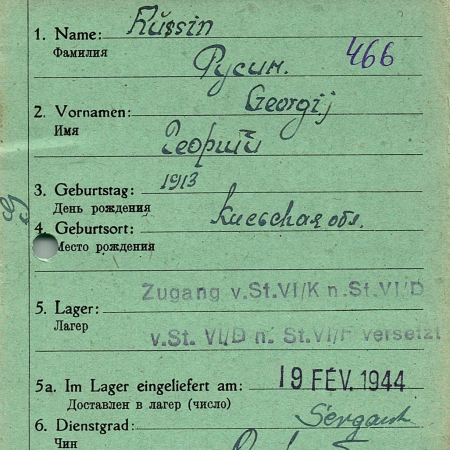 Russin
1. Name:
Фамилия
466
Русин.
Georgij
2. Vornamen:
Имя
Георгий
3. Geburtstag: 1913
День рождения
4. Geburtsort: Киевская обл.
Место рождения
Zugang v.St.VI/K n.St.VI/D
5. Lager:
Лагер
v.St. VI/D n. St.VI/F versetzt
5a. Im Lager eingeliefert am: 19 FEV. 1944
Доставлен в лагер (число)
6. Dienstgrad: Sergant
Чин